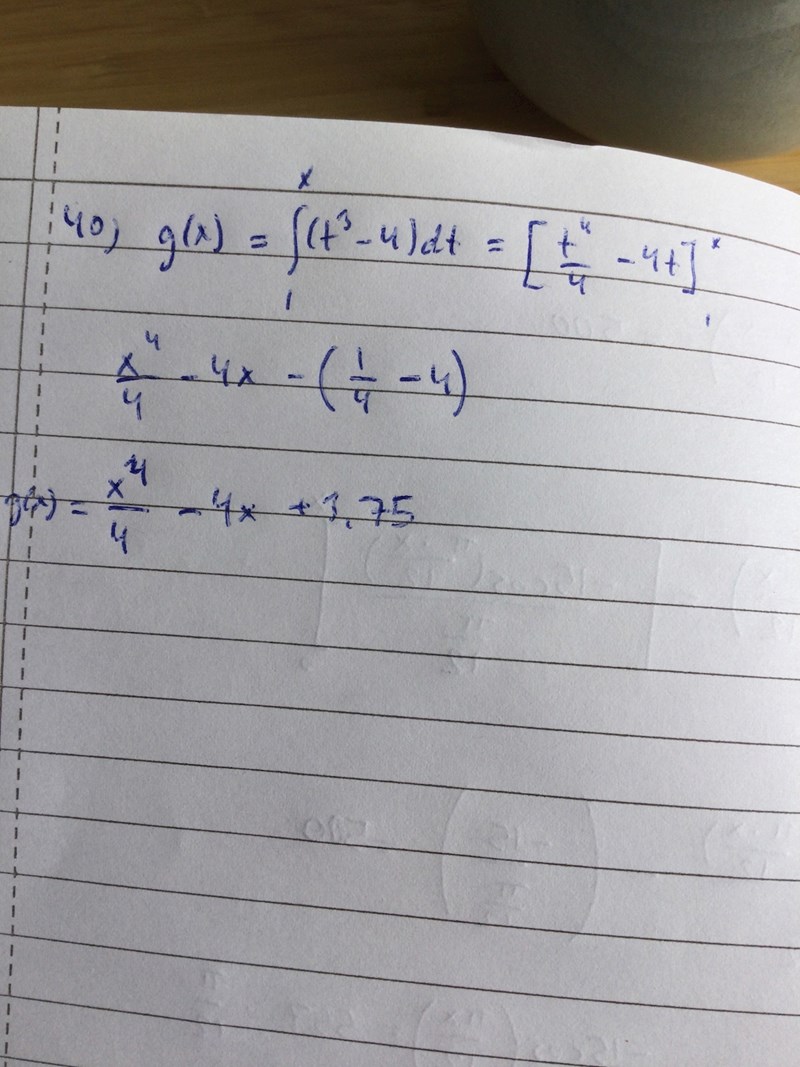 40) g(x) = ∫₁ˣ (t³ - 4) dt = [t⁴/4 - 4t]₁ˣ
x⁴/4 - 4x - (1/4 - 4)
g(x) = x⁴/4 - 4x + 3.75